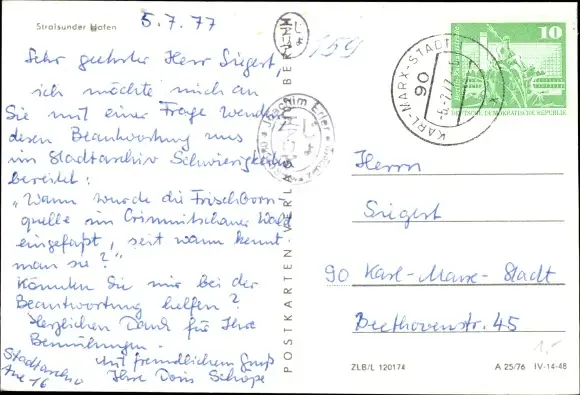 Stralsunder Hafen
5.7.77
Sehr geehrter Herr Siegert,
ich möchte mich an
Sie mit einer Frage wenden
deren Beantwortung uns
im Stadtarchiv Schwierigkeiten
bereitet:
"Wann wurde die Frischborn-
quelle im Crimmitschauer Wald
eingefaßt, seit wann kennt
man sie?"
Könnten Sie mir bei der
Beantwortung helfen?
Herzlichen Dank für Ihre
Bemühungen.
Mit freundlichem Gruß
Ihre Doris Schöpe
Stadtarchiv
POSTKARTEN-VERLAG BERLIN
159
Joachim Erler
KARL-MARX-STADT
90
10
DEUTSCHE DEMOKRATISCHE REPUBLIK
Herrn
Siegert
90 Karl-Marx-Stadt
Beethovenstr. 45
1,-
ZLB/L 120174
A 25/76 IV-14-48